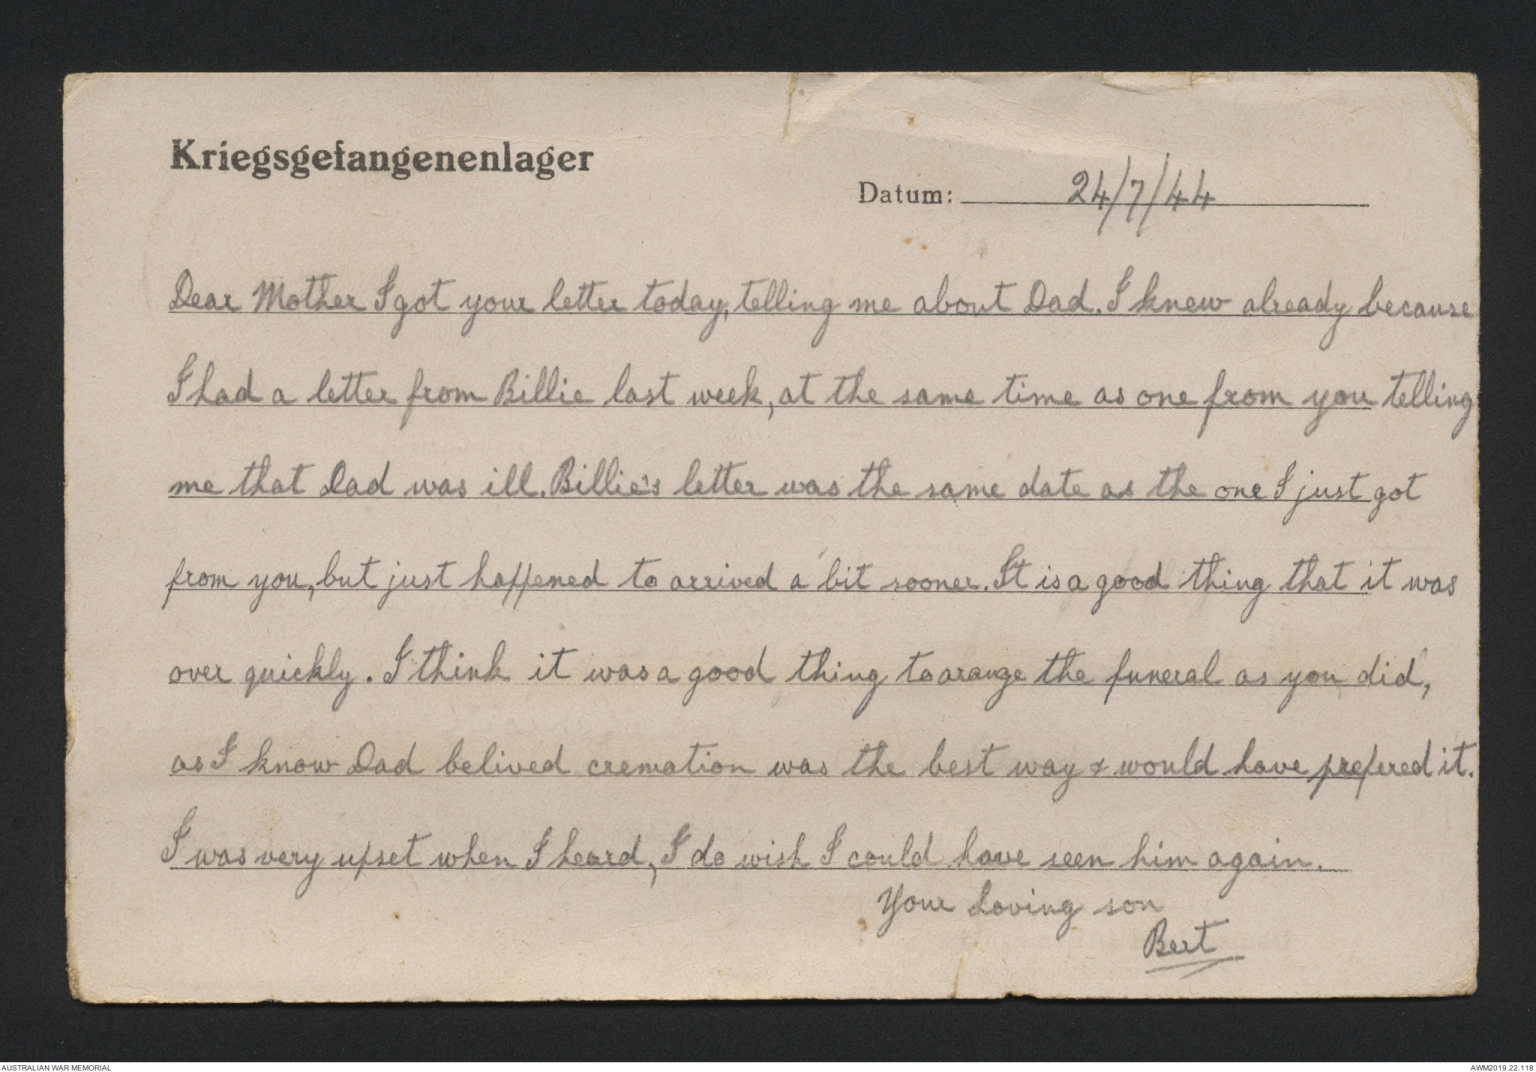 Kriegsgefangenenlager
Datum: 24/7/44
Dear Mother I got your letter today, telling me about Dad. I knew already because
I had a letter from Billie last week, at the same time as one from you telling
me that Dad was ill. Billie's letter was the same date as the one I just got
from you, but just happened to arrived a bit sooner. It is a good thing that it was
over quickly. I think it was a good thing to arange the funeral as you did,
as I know Dad belived cremation was the best way & would have prefered it.
I was very upset when I heard, I do wish I could have seen him again.
Your Loving son
Bert
AUSTRALIAN WAR MEMORIAL
AWM2019.22.118